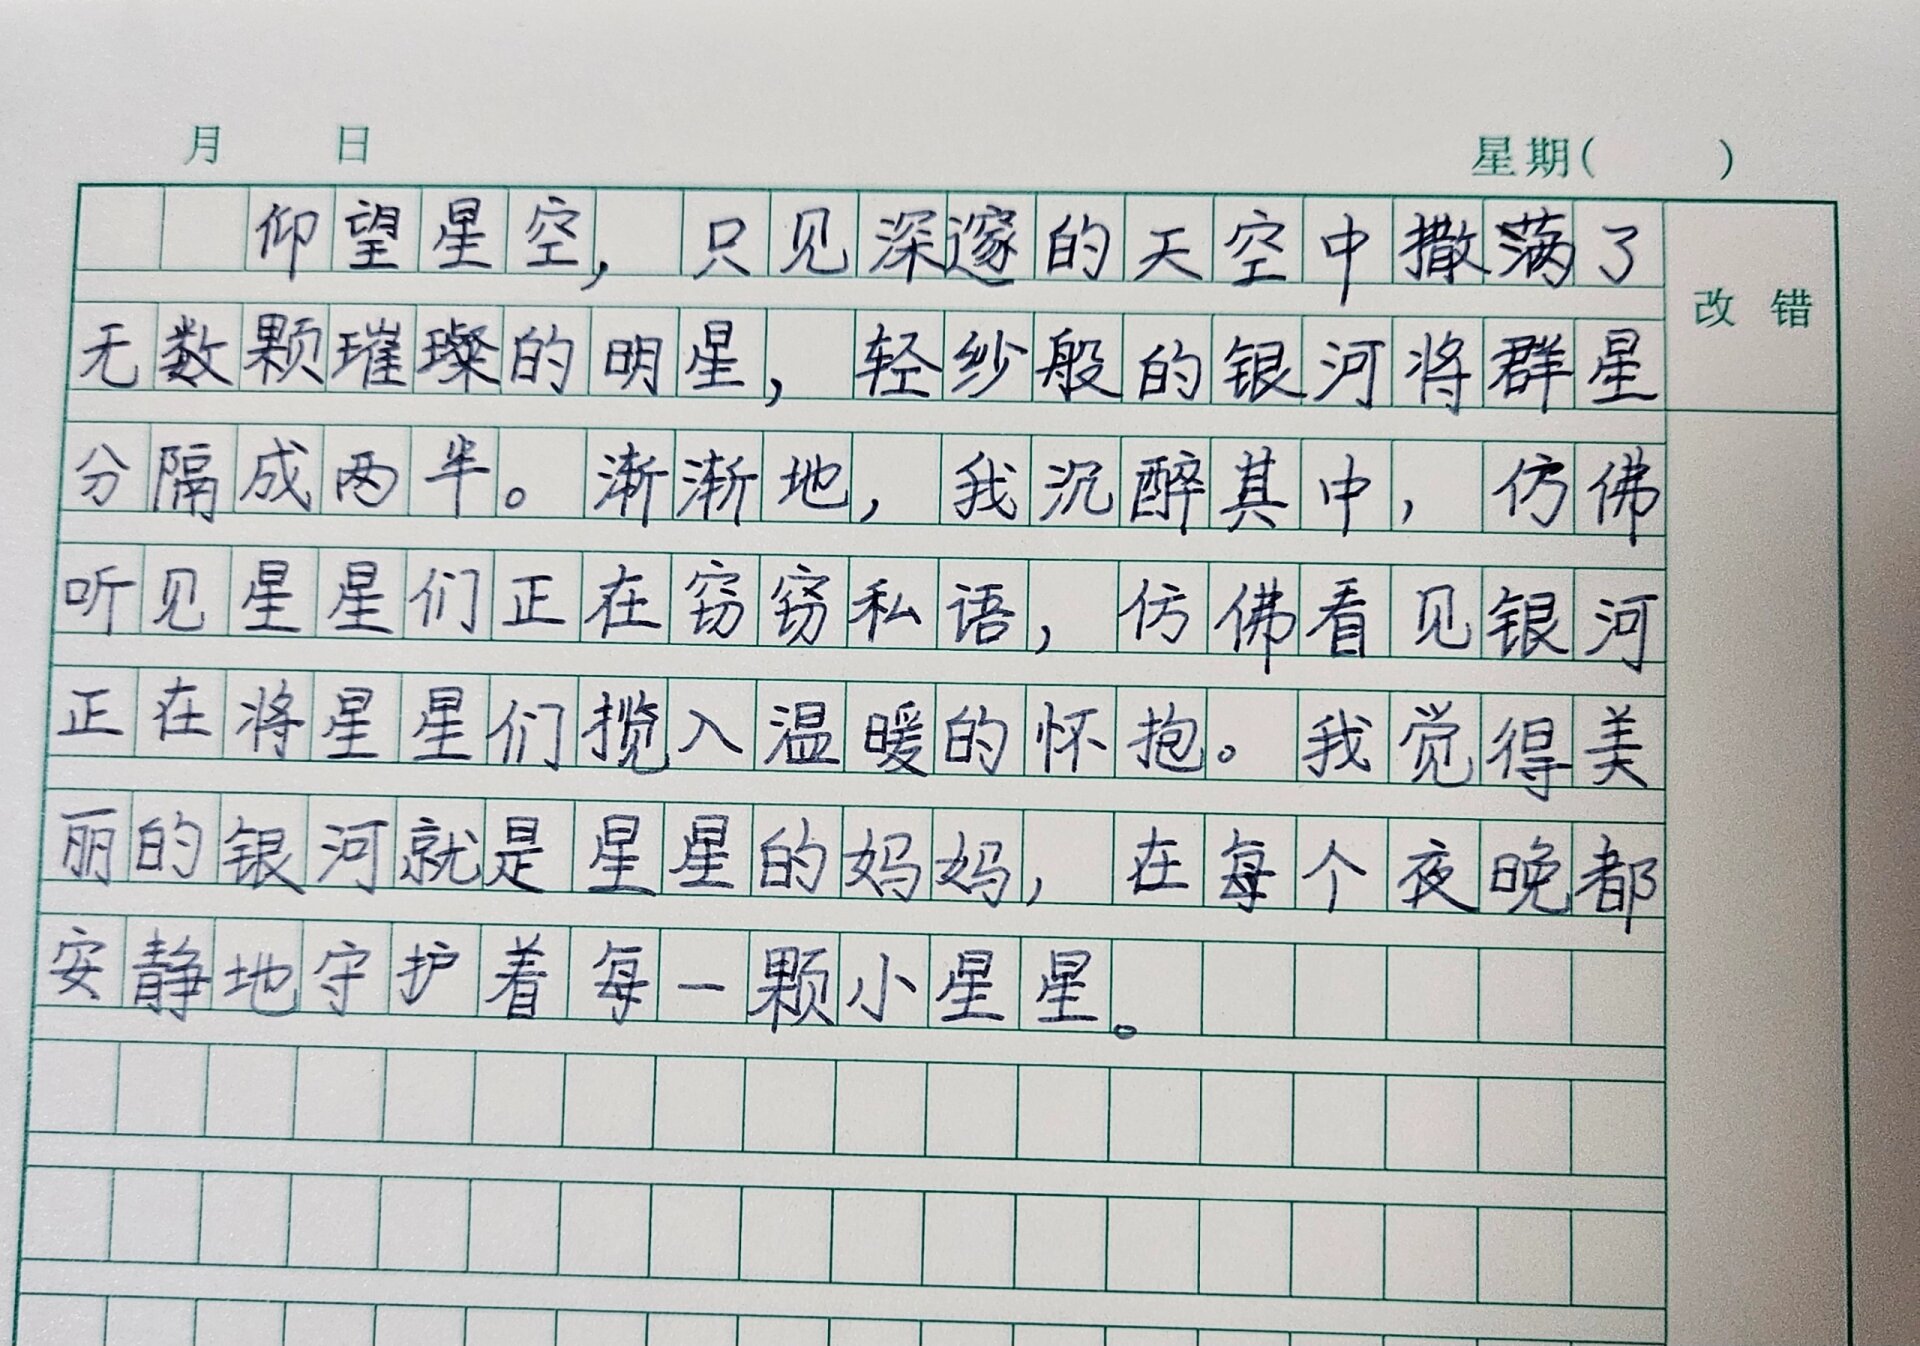 月 日 星期( )
仰望星空，只见深邃的天空中撒满了
改错
无数颗璀璨的明星，轻纱般的银河将群星
分隔成两半。渐渐地，我沉醉其中，仿佛
听见星星们正在窃窃私语，仿佛看见银河
正在将星星们揽入温暖的怀抱。我觉得美
丽的银河就是星星的妈妈，在每个夜晚都
安静地守护着每一颗小星星。